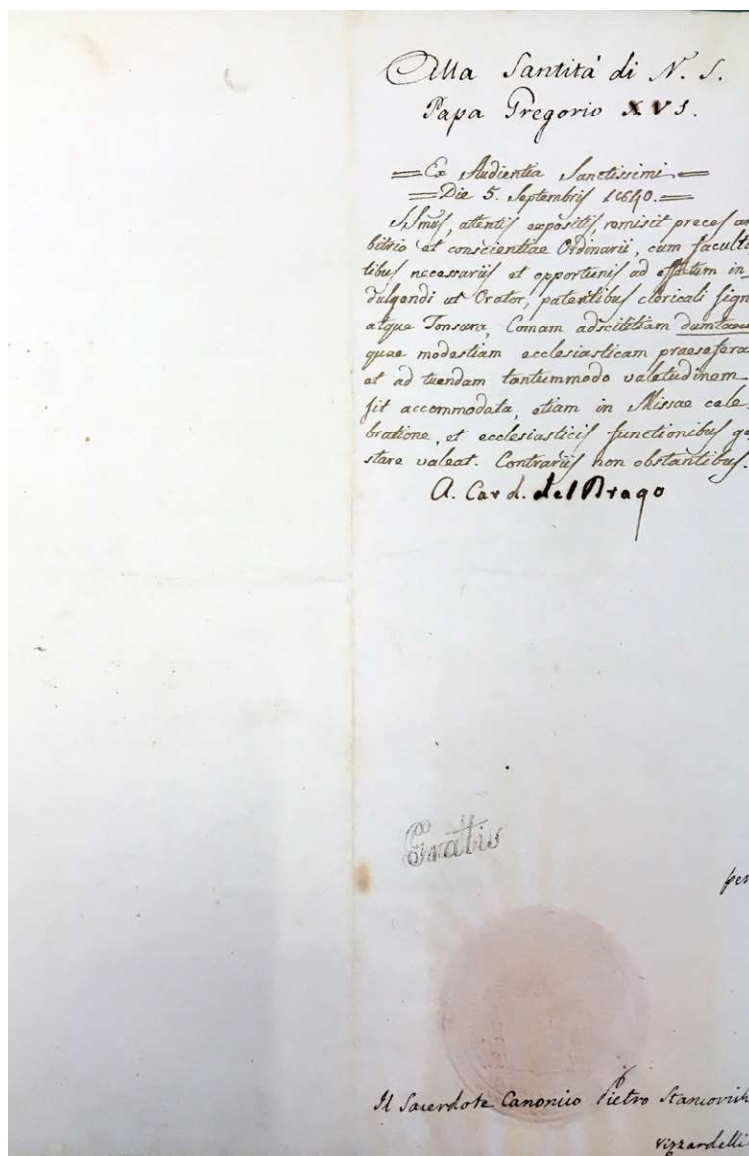 Alla Santità di N. S.
Papa Gregorio XVI.
= Ex Audientia Sanctissimi =
= Die 5. Septembris 1840. =
SSmus, attentis expositis, remisit preces ar
bitrio et conscientiae Ordinarii, cum faculta
tibus necessariis et opportunis ad effectum in_
dulgendi ut Orator, patentibus clericali sign
atque Tonsura, Comam adscititiam dumtaxat
quae modestiam ecclesiasticam praeseferat
et ad tuendam tantummodo valetudinem
sit accommodata, etiam in Missae cele_
bratione, et ecclesiasticis functionibus ge
stare valeat. Contrariis non obstantibus.
A. Card. del Drago
Gratis
per
Il Sacerdote Canonico Pietro Stancovich
Vizzardelli